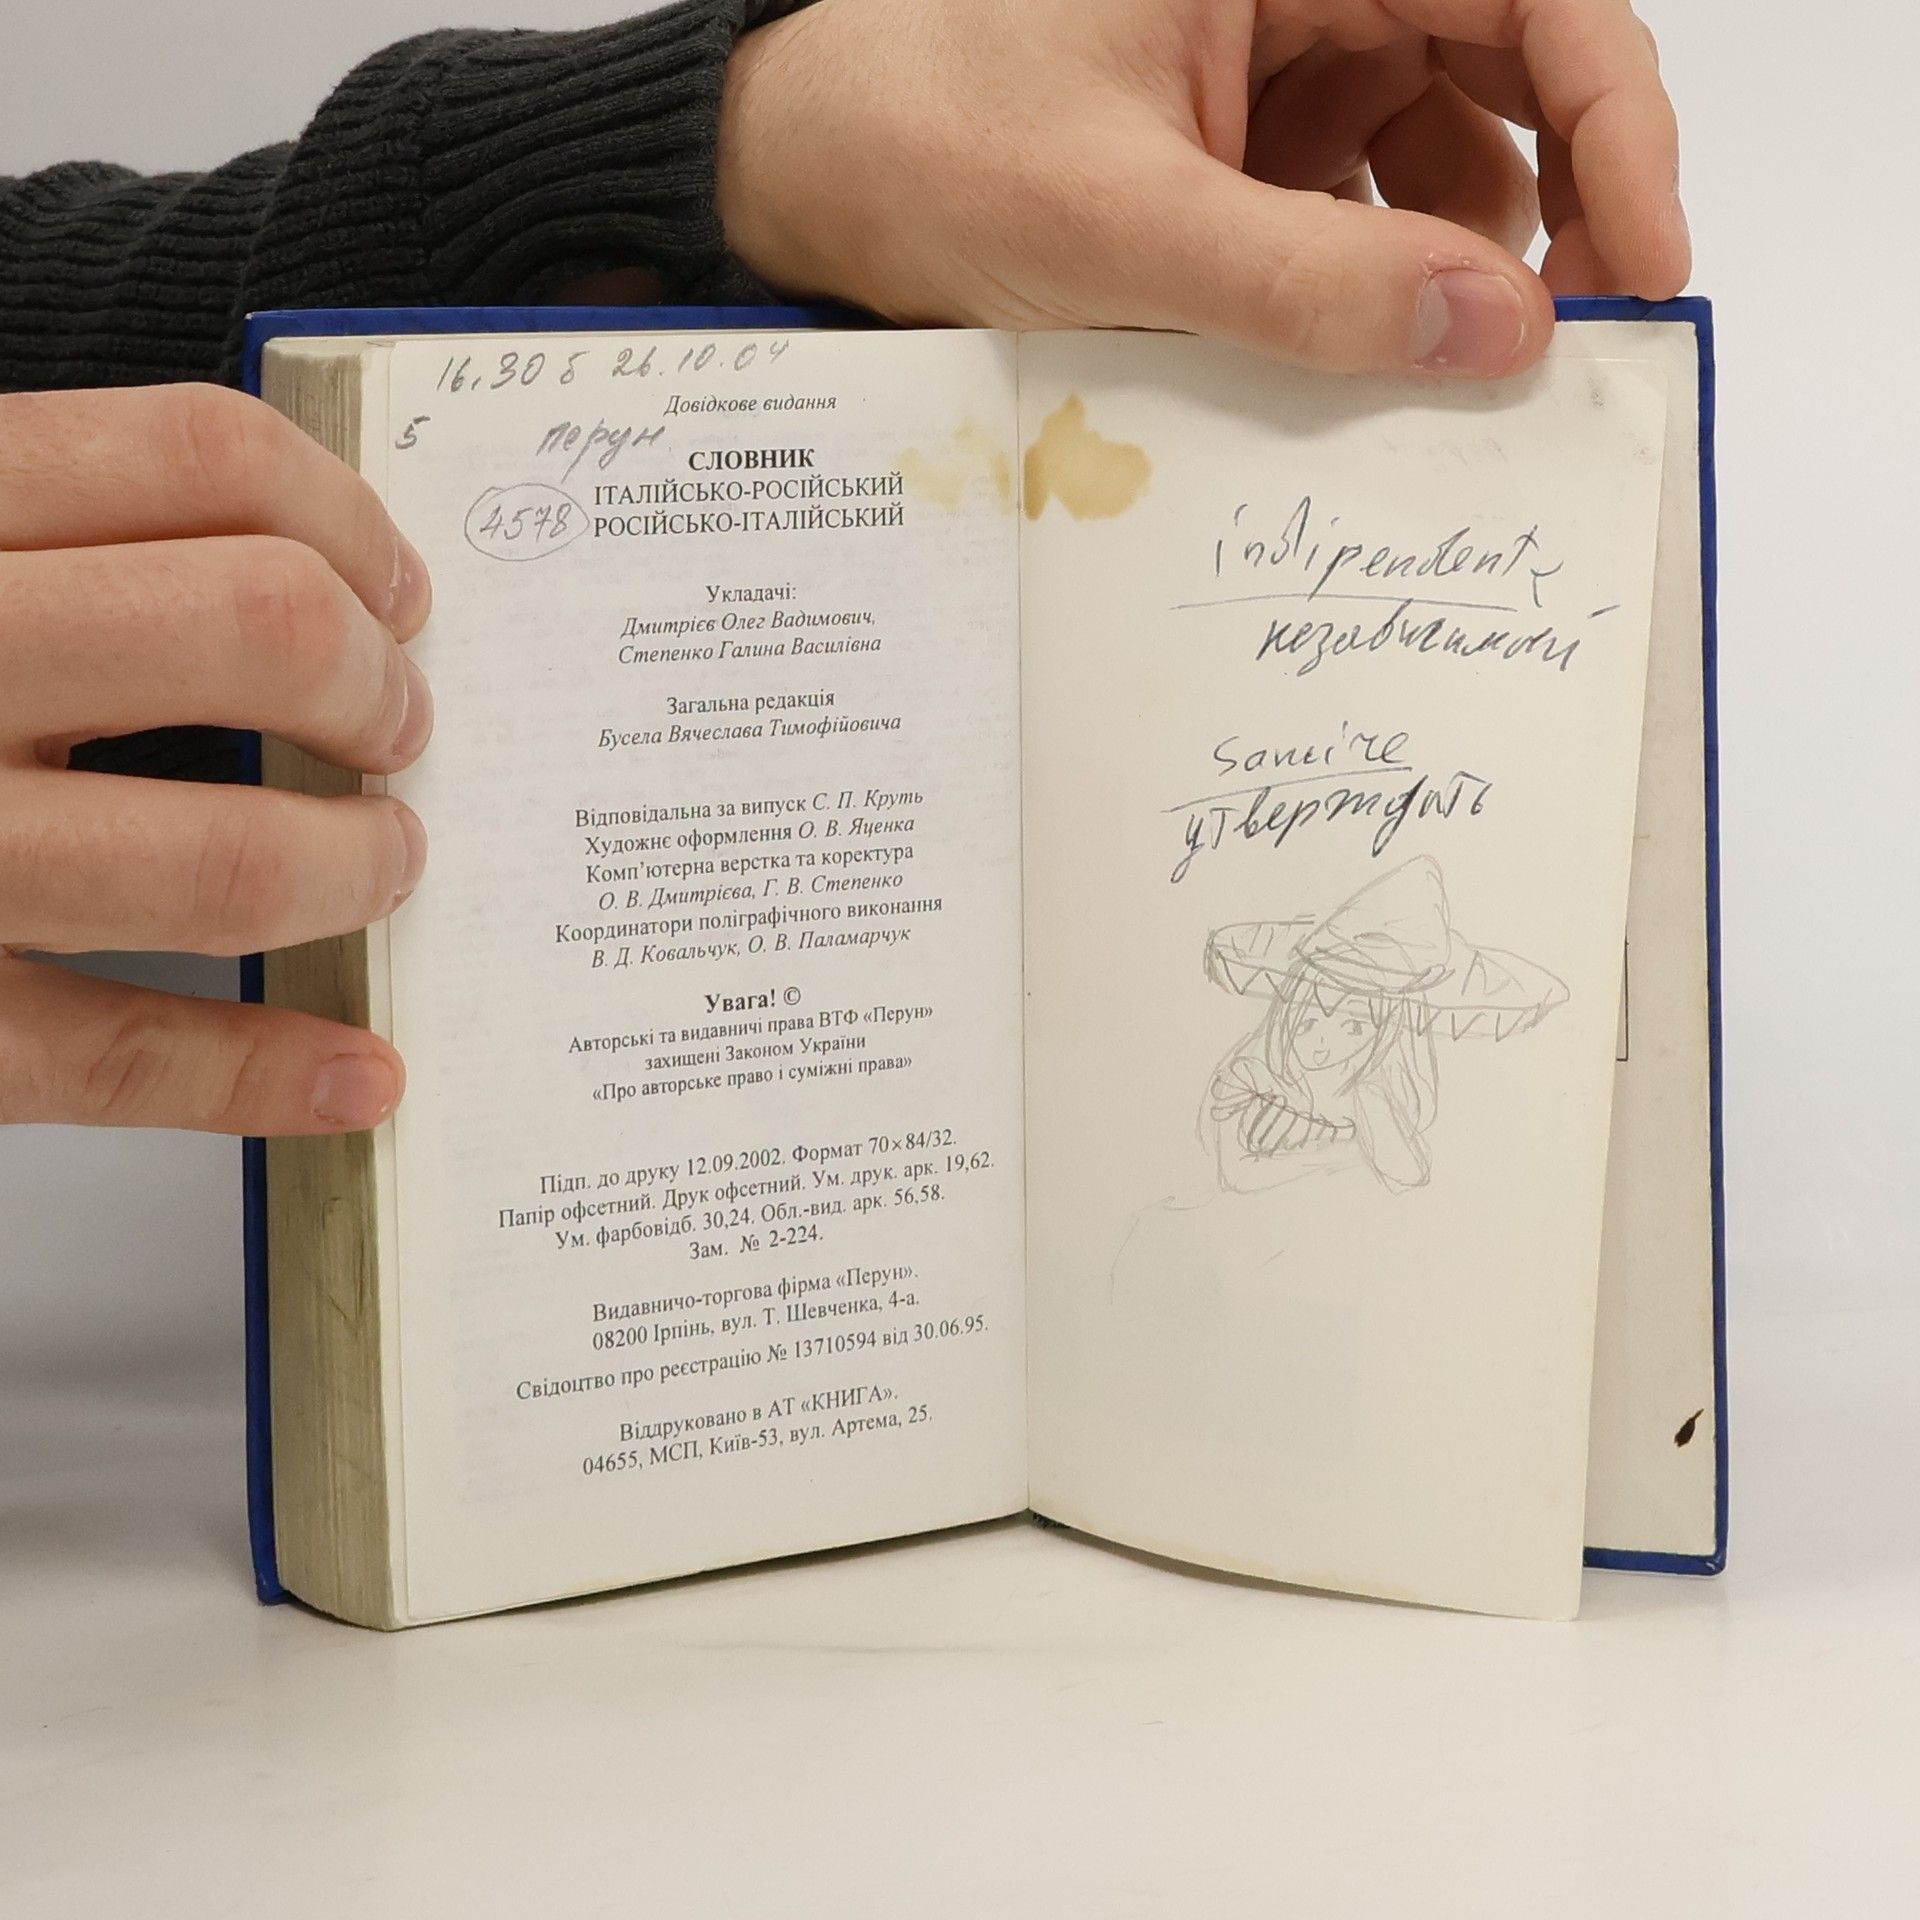 16.30 б 26.10.04
Довідкове видання
5 перун
СЛОВНИК
ІТАЛІЙСЬКО-РОСІЙСЬКИЙ
4578 РОСІЙСЬКО-ІТАЛІЙСЬКИЙ
Укладачі:
Дмитрієв Олег Вадимович,
Степенко Галина Василівна
Загальна редакція
Бусела Вячеслава Тимофійовича
Відповідальна за випуск С. П. Круть
Художнє оформлення О. В. Яценка
Комп’ютерна верстка та коректура
О. В. Дмитрієва, Г. В. Степенко
Координатори поліграфічного виконання
В. Д. Ковальчук, О. В. Паламарчук
Увага! ©
Авторські та видавничі права ВТФ «Перун»
захищені Законом України
«Про авторське право і суміжні права»
Підп. до друку 12.09.2002. Формат 70×84/32.
Папір офсетний. Друк офсетний. Ум. друк. арк. 19,62.
Ум. фарбовідб. 30,24. Обл.-вид. арк. 56,58.
Зам. № 2-224.
Видавничо-торгова фірма «Перун».
08200 Ірпінь, вул. Т. Шевченка, 4-а.
Свідоцтво про реєстрацію № 13710594 від 30.06.95.
Віддруковано в АТ «КНИГА».
04655, МСП, Київ-53, вул. Артема, 25.
indipendente
независимый
sancire
утверждать